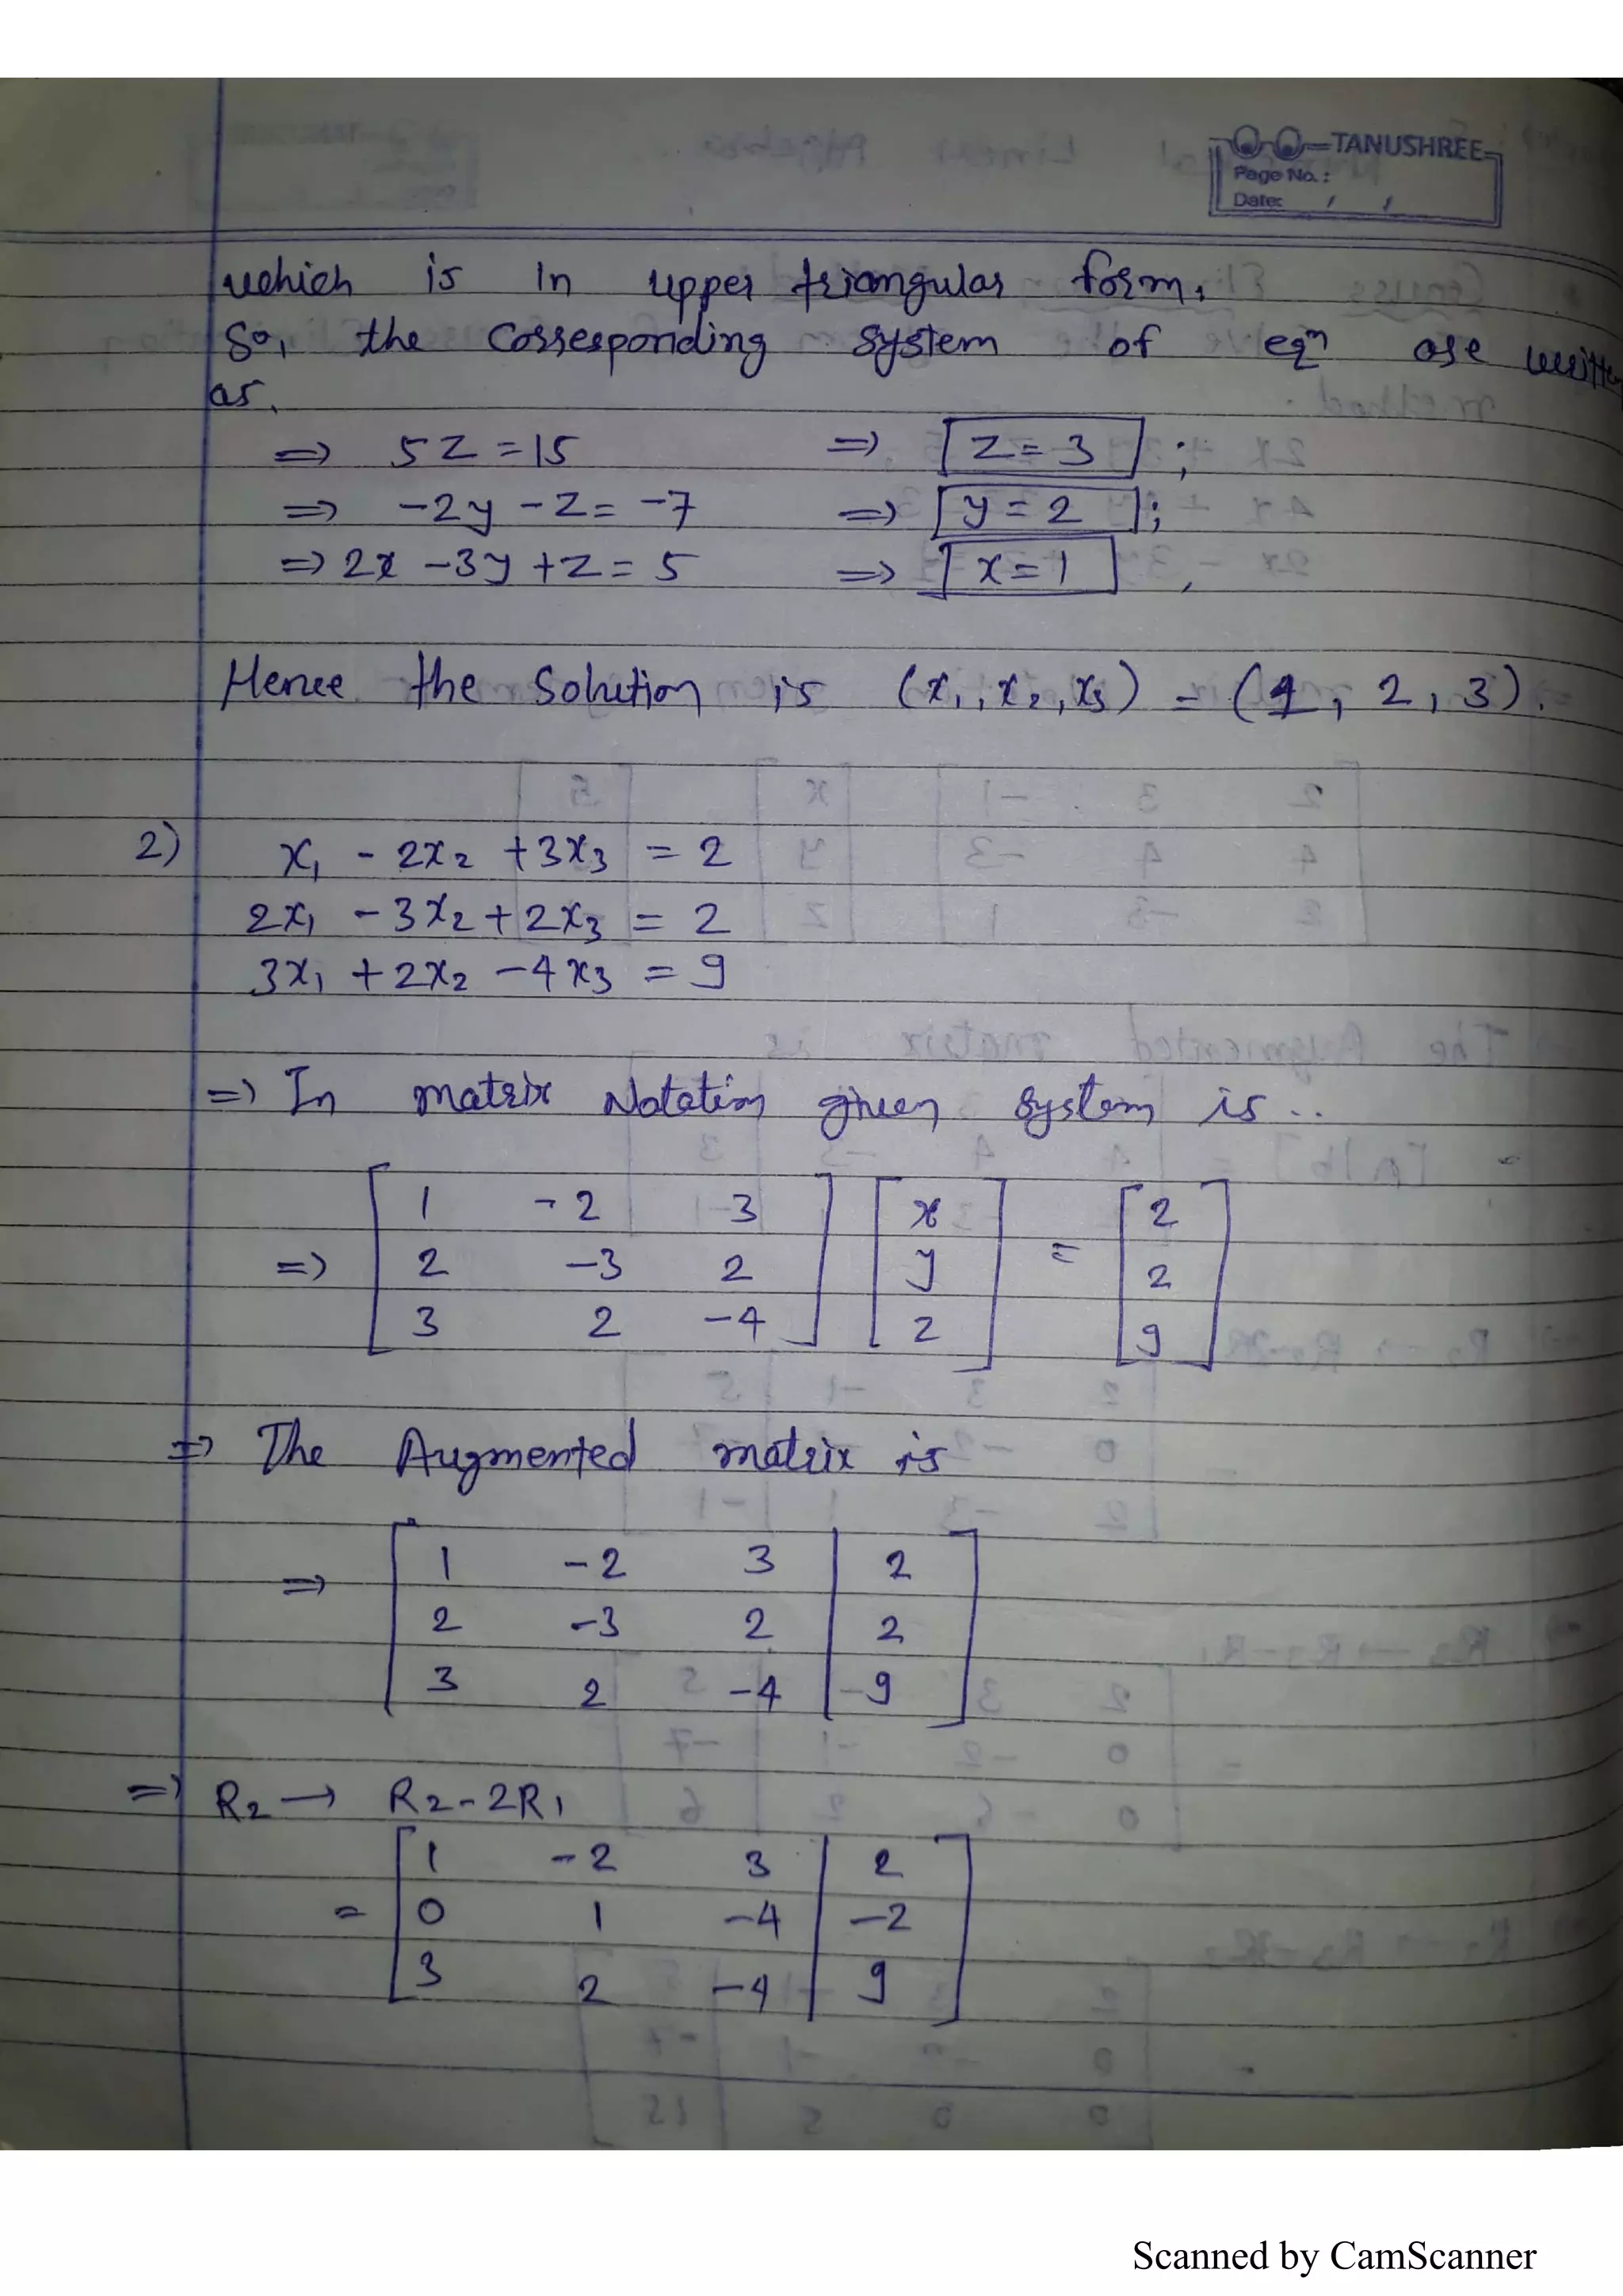 TANUSHREE
Page No.:
Date: / /
which is in upper triangular form.
So, the corresponding system of eqn are written
as.
=> 5z = 15 => z = 3 ;
=> -2y - z = -7 => y = 2 ;
=> 2x - 3y + z = 5 => x = 1 ,
Hence the solution is (x1, x2, x3) = (1, 2, 3).
2) x1 - 2x2 + 3x3 = 2
2x1 - 3x2 + 2x3 = 2
3x1 + 2x2 - 4x3 = 9
=> In matrix Notation given system is ..
1 -2 3 x 2
=> 2 -3 2 y = 2
3 2 -4 z 9
=> The Augmented matrix is
=> 1 -2 3 | 2
2 -3 2 | 2
3 2 -4 | 9
=> R2 → R2 - 2R1
1 -2 3 | 2
= 0 1 -4 | -2
3 2 -4 | 9
Scanned by CamScanner